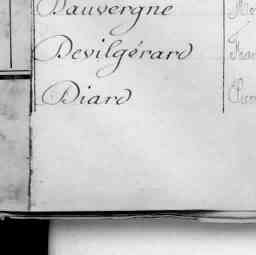 Dauvergne
Devilgérard
Diard